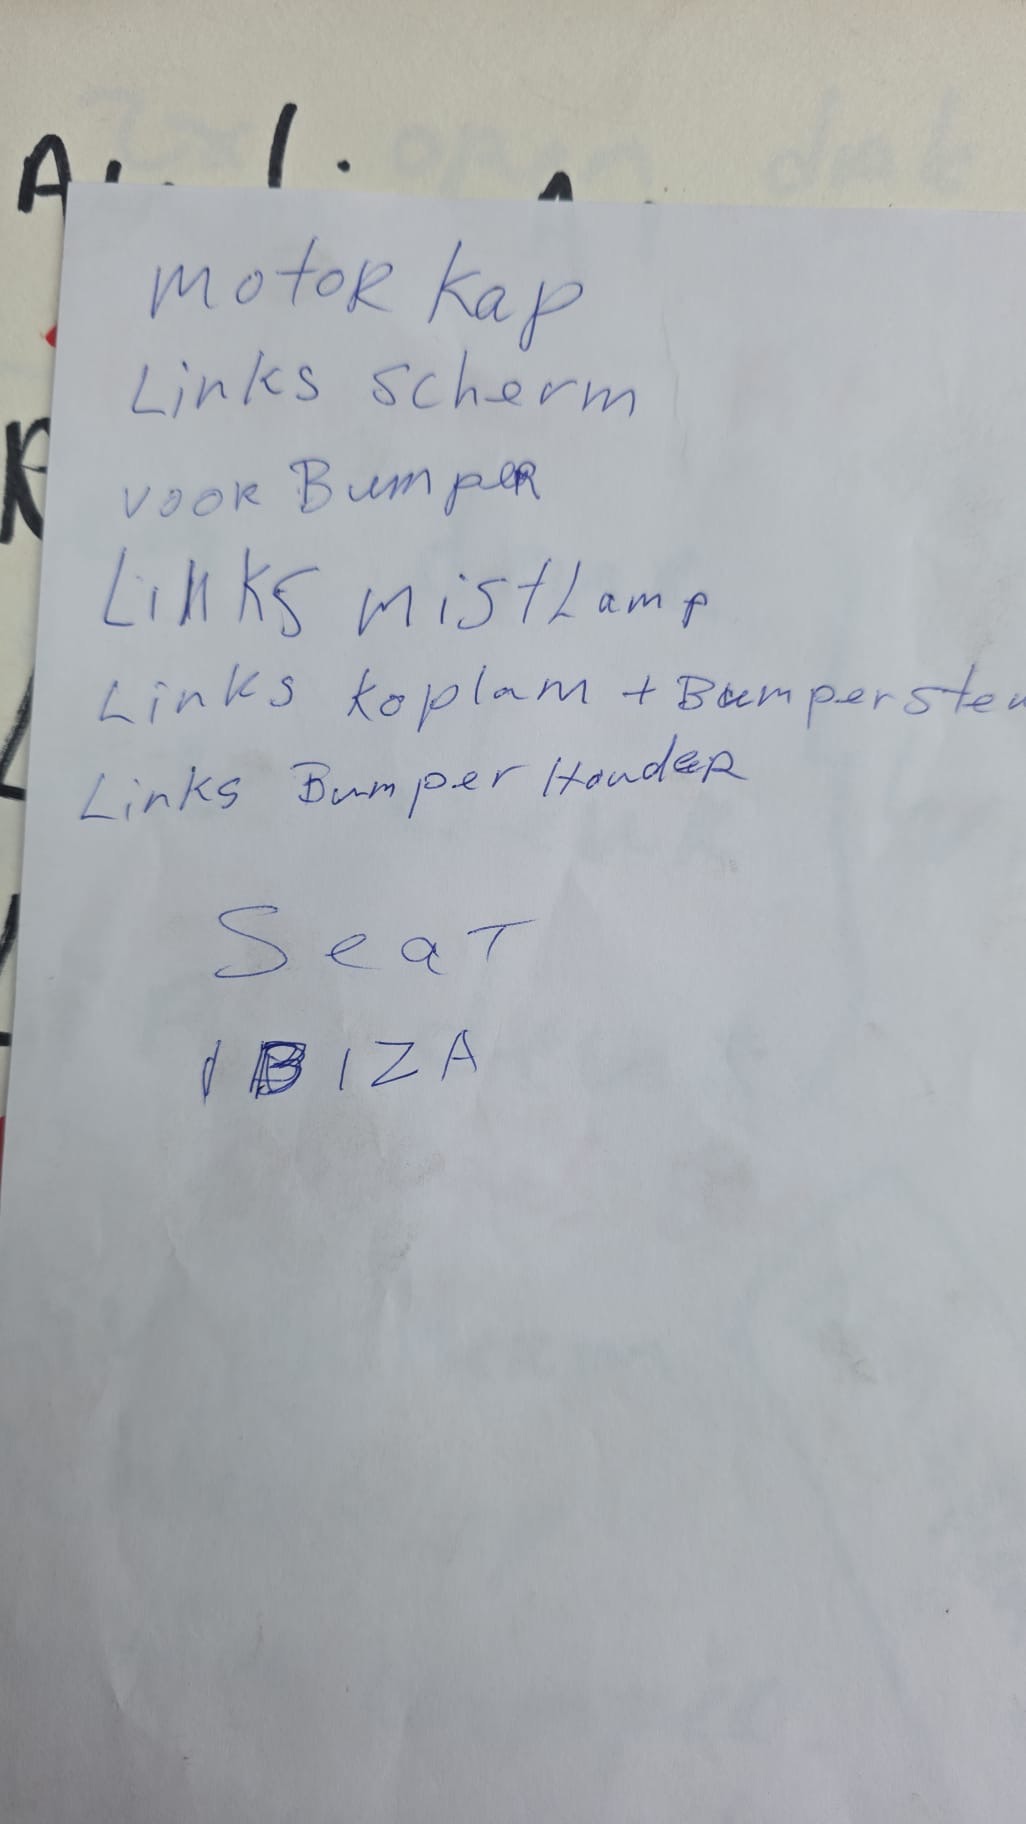 motor kap
Links scherm
voor Bumper
Links mistLamp
Links koplam + Bumper
Links Bumper Houder
Seat
IBIZA